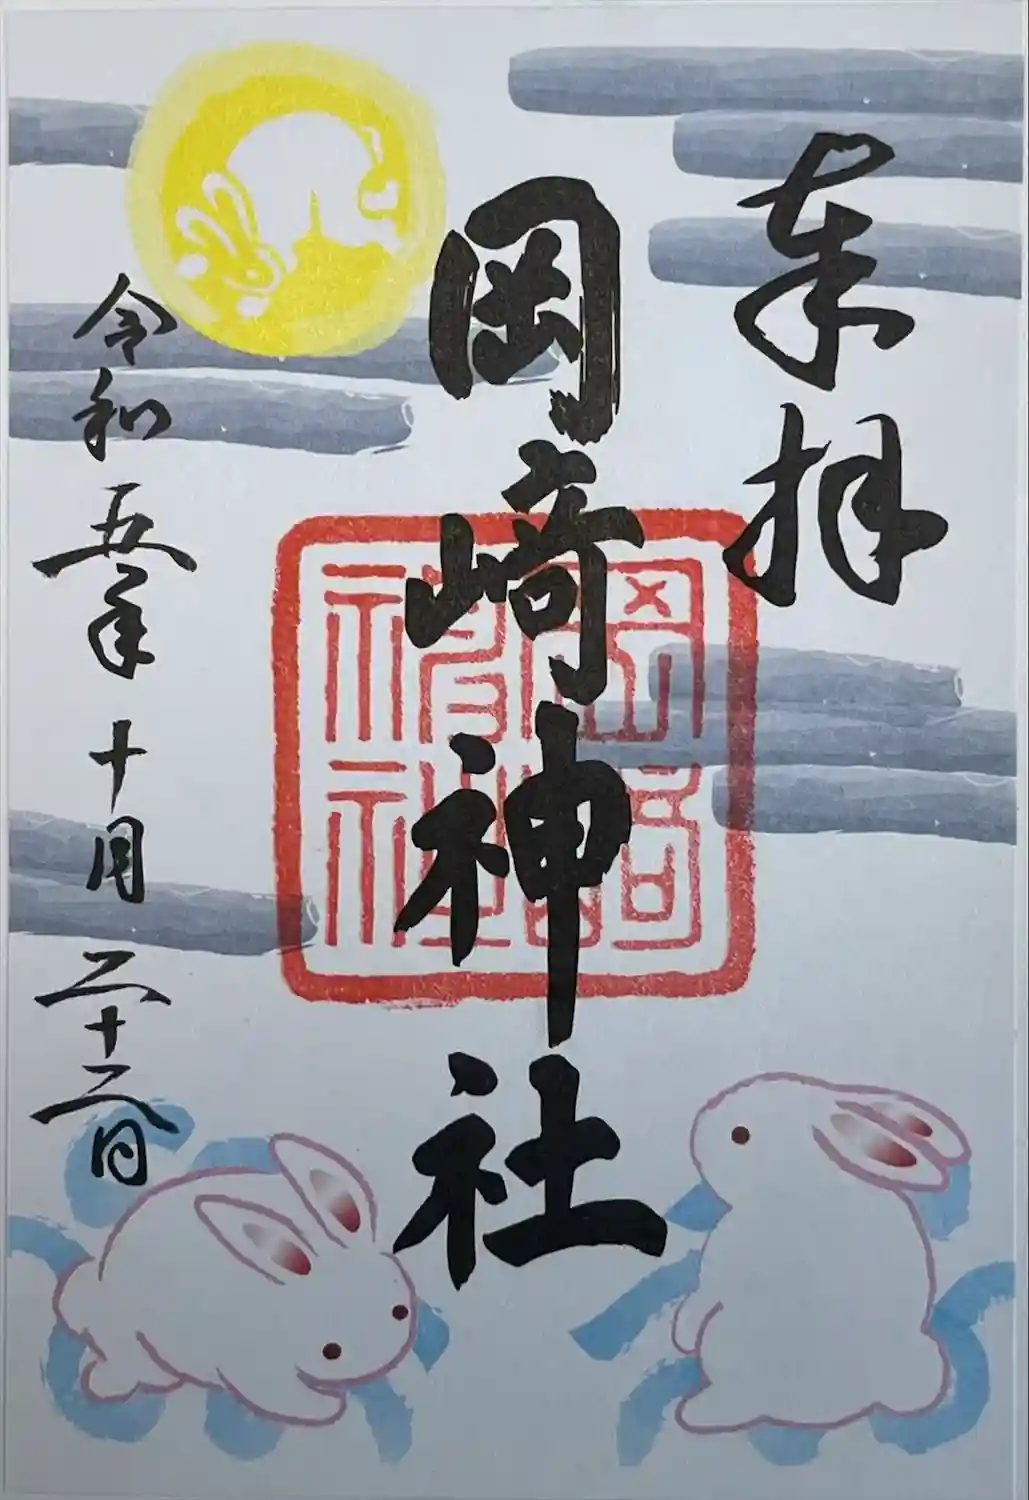 奉拝
岡崎神社
岡崎神社
令和五年十月二十二日